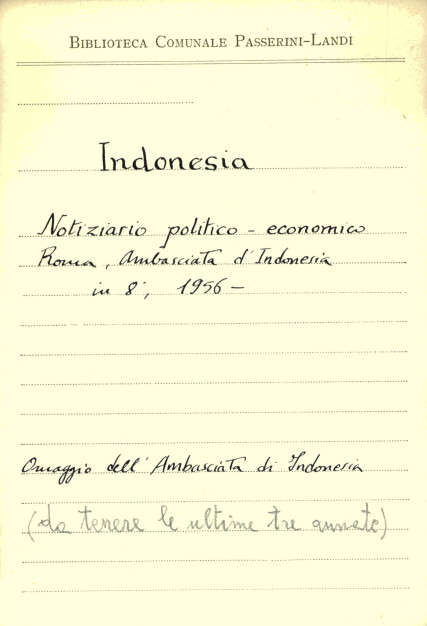 BIBLIOTECA COMUNALE PASSERINI-LANDI
Indonesia
Notiziario politico - economico
Roma, Ambasciata d'Indonesia
in 8°, 1956 -
Omaggio dell'Ambasciata di Indonesia
(da tenere le ultime tre annate)